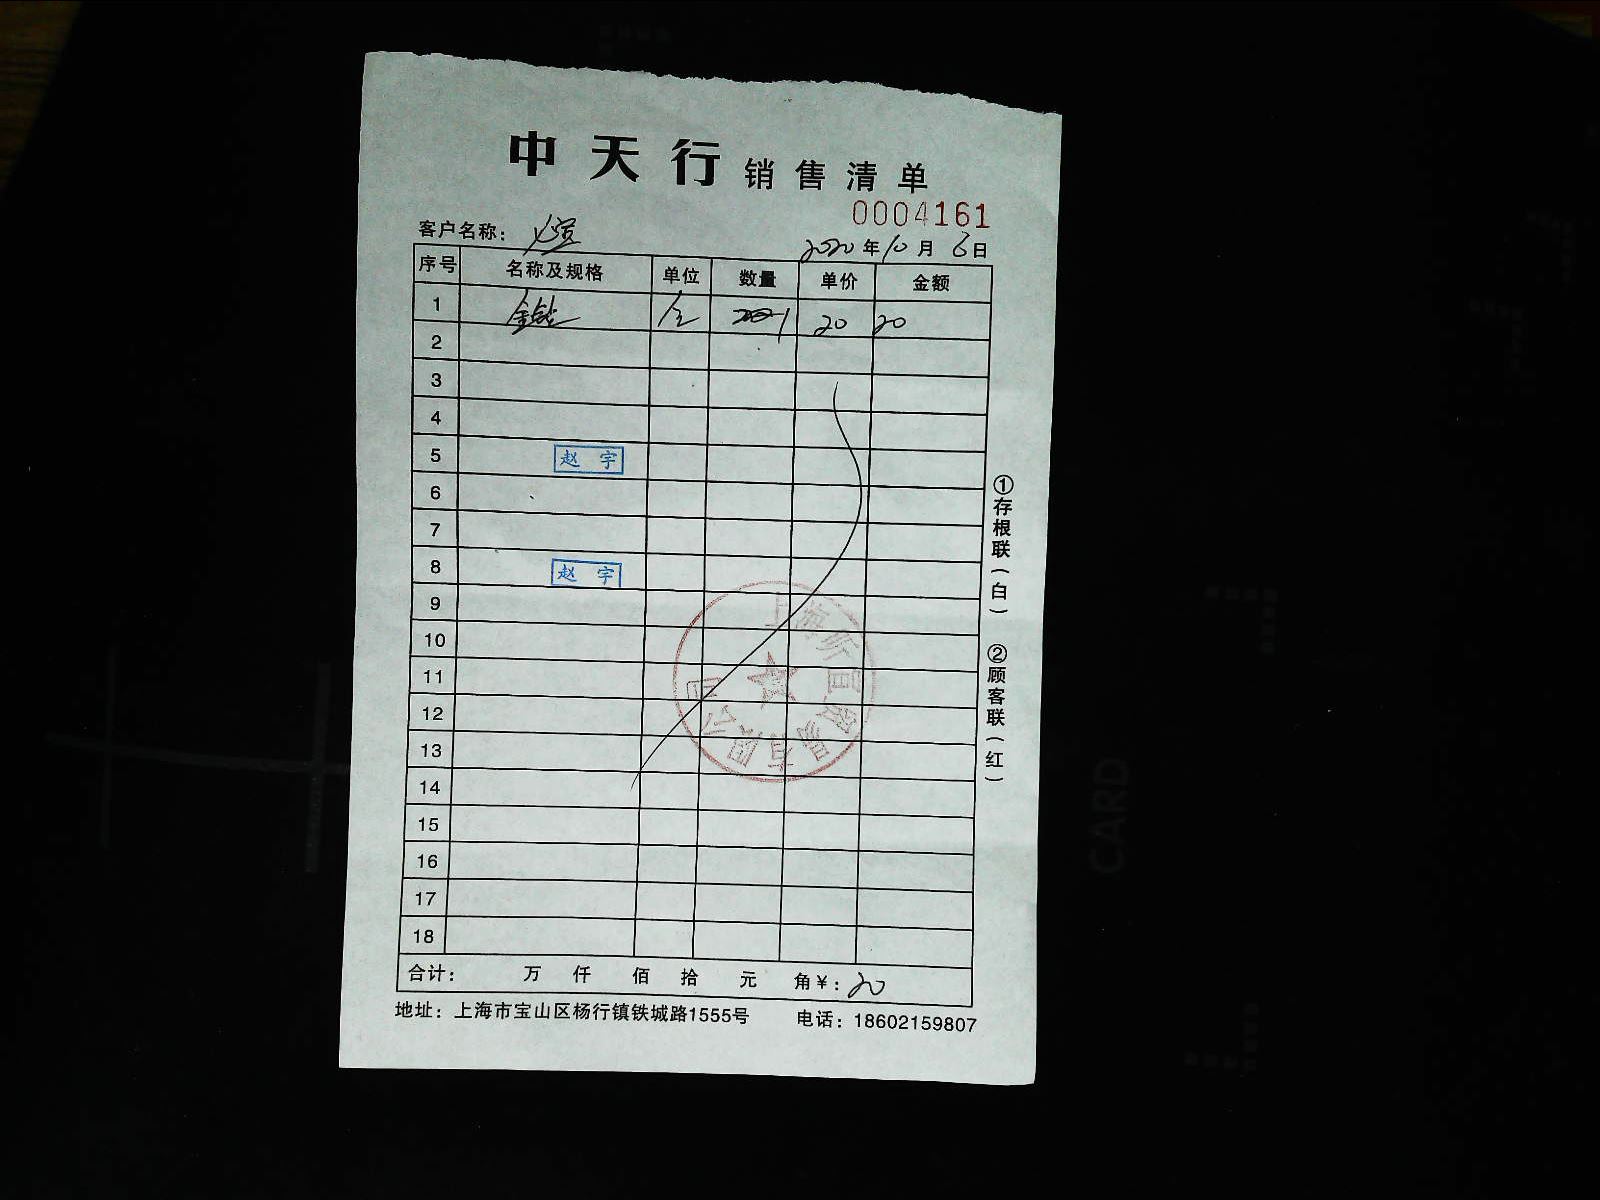 中天行销售清单
0004161
客户名称：
2020年10月6日
序号 名称及规格 单位 数量 单价 金额
1 个 1 20 20
2
3
4
5 赵宇
6
7
8 赵宇
9
10
11
12
13
14
15
16
17
18
合计： 万 仟 佰 拾 元 角¥：20
地址：上海市宝山区杨行镇铁城路1555号 电话：18602159807
①存根联（白）
②顾客联（红）